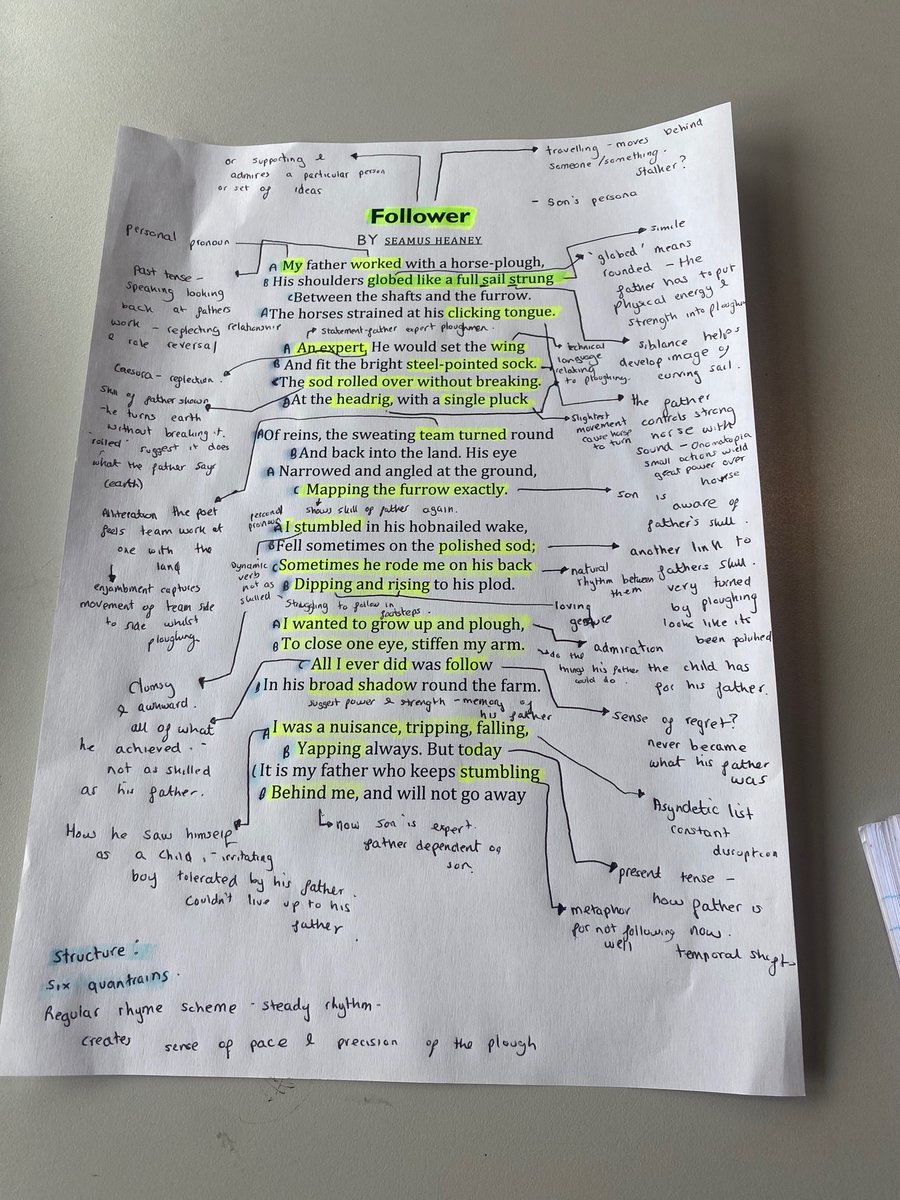 or supporting &
admires a particular person
or set of ideas
travelling - moves behind
someone/something.
stalker?
- son's persona
Follower
BY SEAMUS HEANEY
personal pronoun
past tense -
speaking looking
back at fathers
work - reflecting relationship
& role reversal
Caesora - reflection.
skill of father shown
- he turns earth
without breaking it.
'rolled' suggest it does
what the father says
(earth)
Alliteration the poet
feels team work at
one with the
land
enjambment captures
movement of team side
to side whilst
ploughing
Clumsy
& awkward.
all of what
he achieved -
not as skilled
as his father.
How he saw himself
as a child, - irritating
boy tolerated by his father.
couldn't live up to his
father.
A My father worked with a horse-plough,
B His shoulders globed like a full sail strung
C Between the shafts and the furrow.
A The horses strained at his clicking tongue.
statement-father expert ploughman.
A An expert, He would set the wing
B And fit the bright steel-pointed sock.
C The sod rolled over without breaking.
D At the headrig, with a single pluck
A Of reins, the sweating team turned round
B And back into the land. His eye
A Narrowed and angled at the ground,
C Mapping the furrow exactly.
personal
pronoun
shows skill of father again.
A I stumbled in his hobnailed wake,
B Fell sometimes on the polished sod;
C Sometimes he rode me on his back
B Dipping and rising to his plod.
Dynamic
verb
not as
skilled
- struggling to follow in
footsteps.
A I wanted to grow up and plough,
B To close one eye, stiffen my arm.
C All I ever did was follow
B In his broad shadow round the farm.
suggest power & strength - memory of
his father
A I was a nuisance, tripping, falling,
B Yapping always. But today
C It is my father who keeps stumbling
D Behind me, and will not go away
now son is expert.
father dependent on
son.
simile
'globed' means
rounded - the
father has to put
physical energy &
strength into plough
siblance helps
develop image of
curving sail.
technical
language
relating
to ploughing.
the father
controls strong
horse with
sound - Onomatopia
small actions wield
great power over
horse
slightest
movement
cause horse
to turn
son is
aware of
father's skill.
another link to
fathers skill.
very turned
by ploughing
looks like it
been polished
natural
rhythm between
them
loving
gesture
admiration
the child has
for his father.
do the
things his father
could do.
sense of regret?
never became
what his father
was
Asyndetic list
constant
disruption
present tense -
how father is
now.
temporal shift
metaphor
for not following
well
Structure:
six quantrains.
Regular rhyme scheme - steady rhythm -
creates sense of pace & precision of the plough